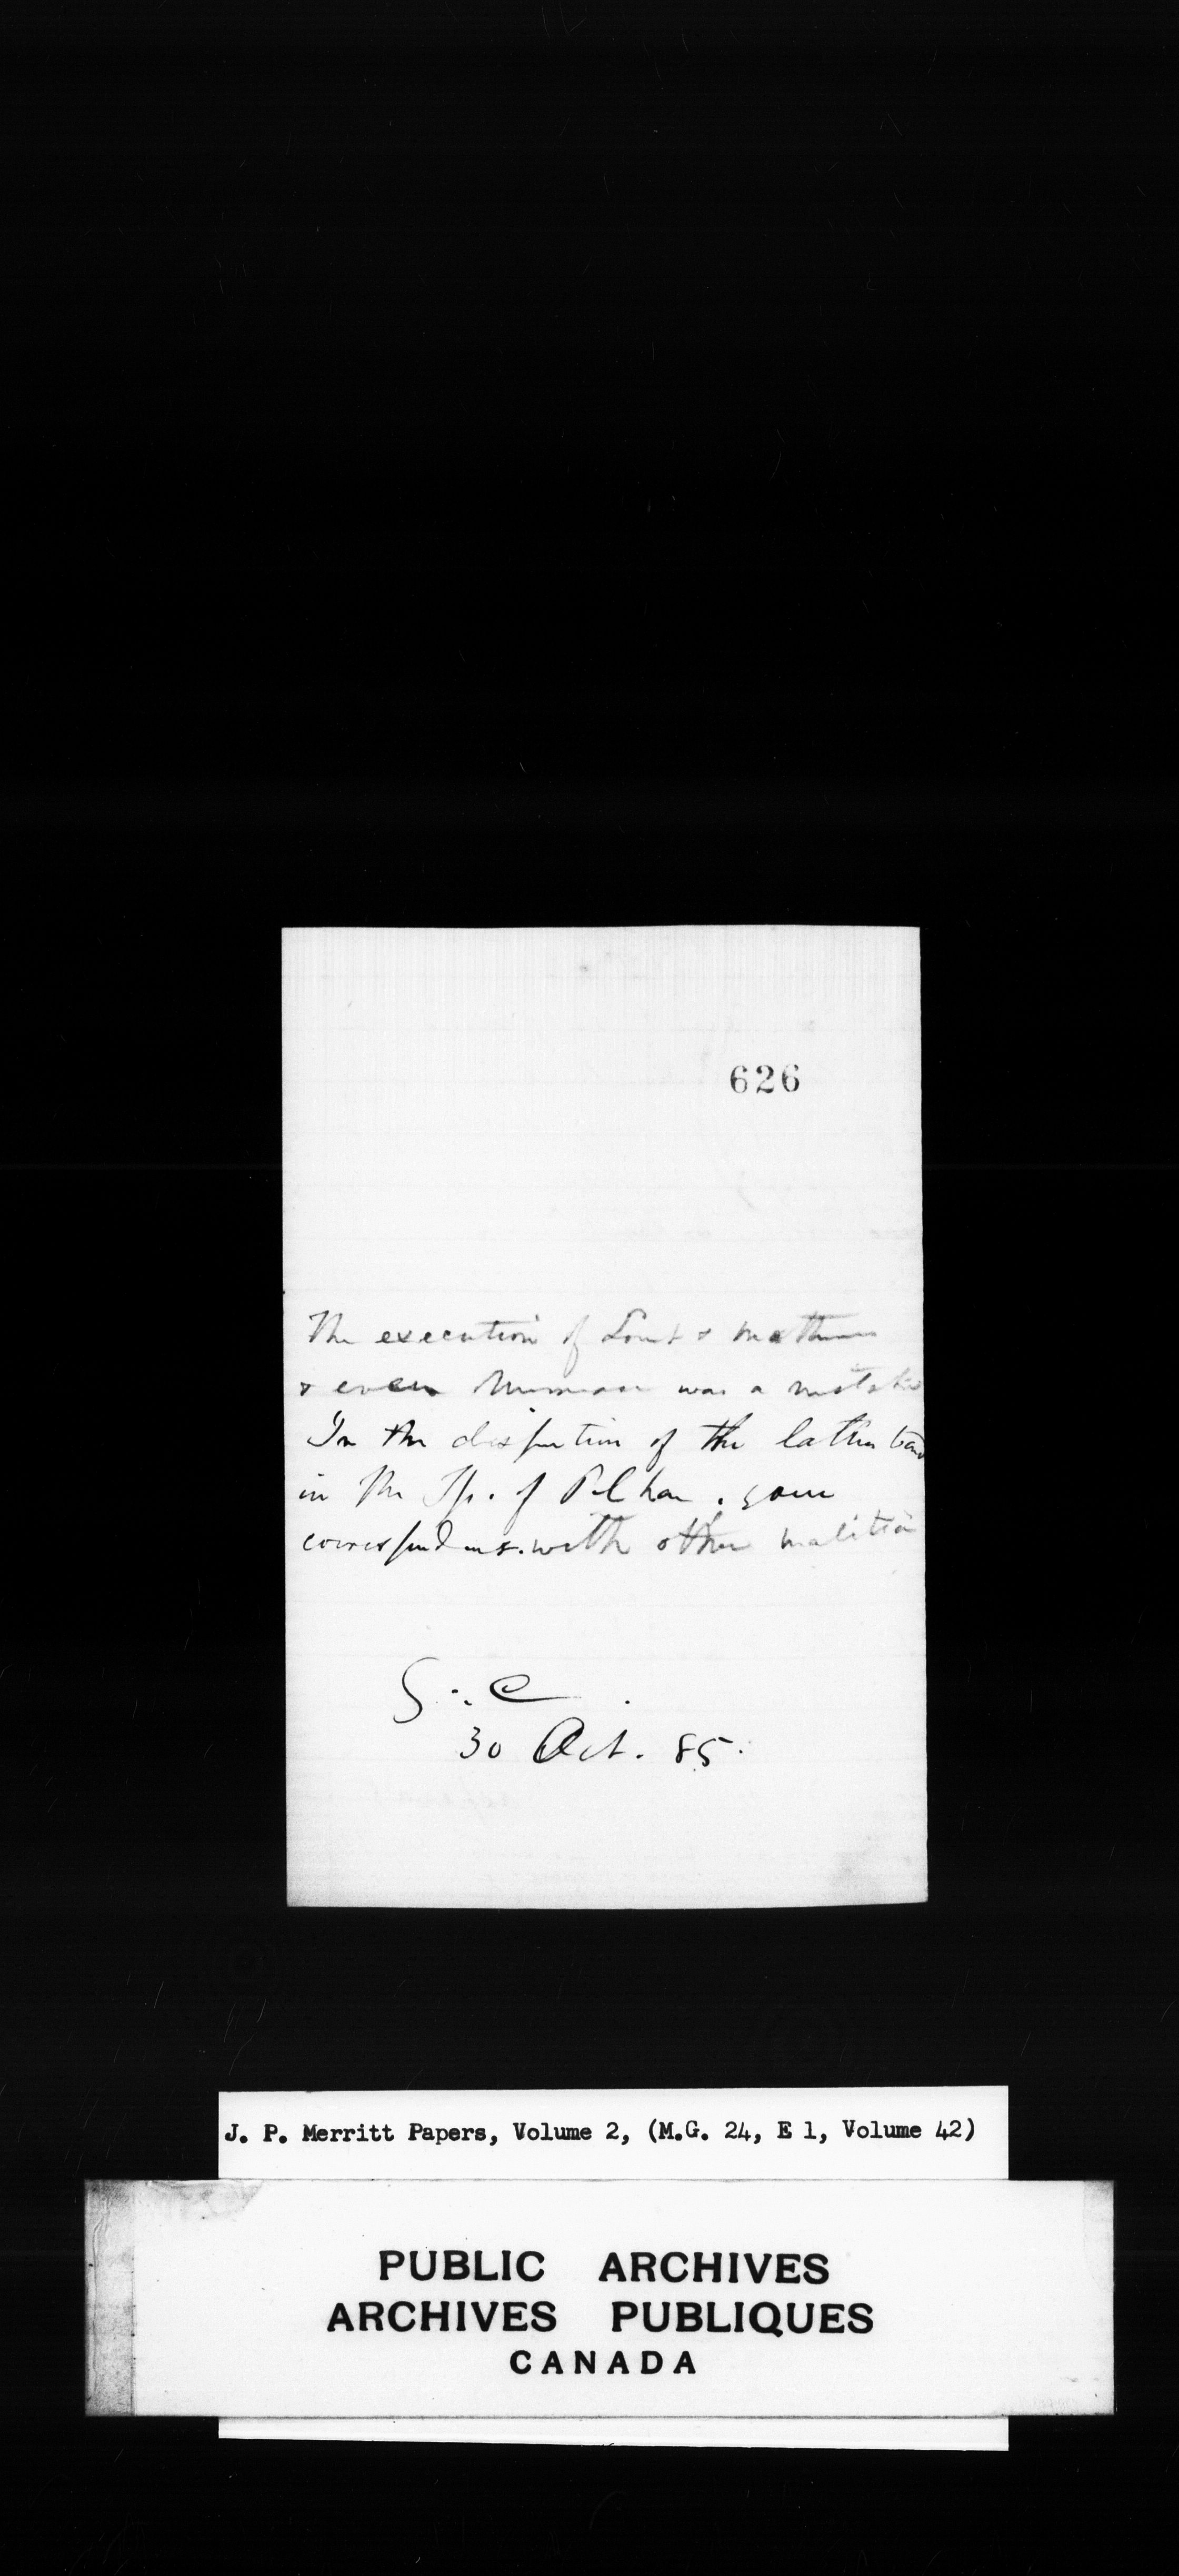 626
The execution of Lount & Mathews
& even Morreau was a mistake
In the dispertion of the latter band
in the Tp. of Pelham. your
correspondent. with other malitia
S. C
30 Oct. 85.
J. P. Merritt Papers, Volume 2, (M.G. 24, E 1, Volume 42)
PUBLIC ARCHIVES
ARCHIVES PUBLIQUES
CANADA